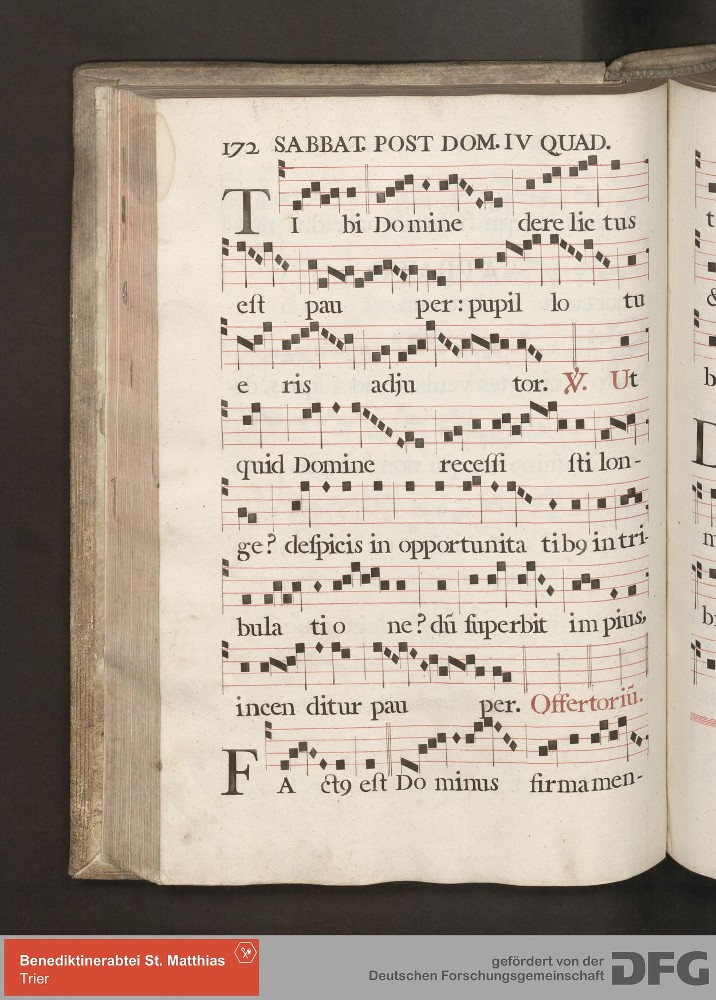 172 SABBAT. POST DOM. IV QUAD.
TI bi Do mine dere lic tus
eſt pau per : pupil lo tu
e ris adju tor. ℣. Ut
quid Domine receſſi ſti lon-
ge? deſpicis in opportunita tib9 in tri-
bula ti o ne? dū ſuperbit im pius,
incen ditur pau per. Offertoriū.
FA ct9 eſt Do minus firmamen-
t
&
b
D
m
bi
Benediktinerabtei St. Matthias
Trier
gefördert von der
Deutschen Forschungsgemeinschaft
DFG